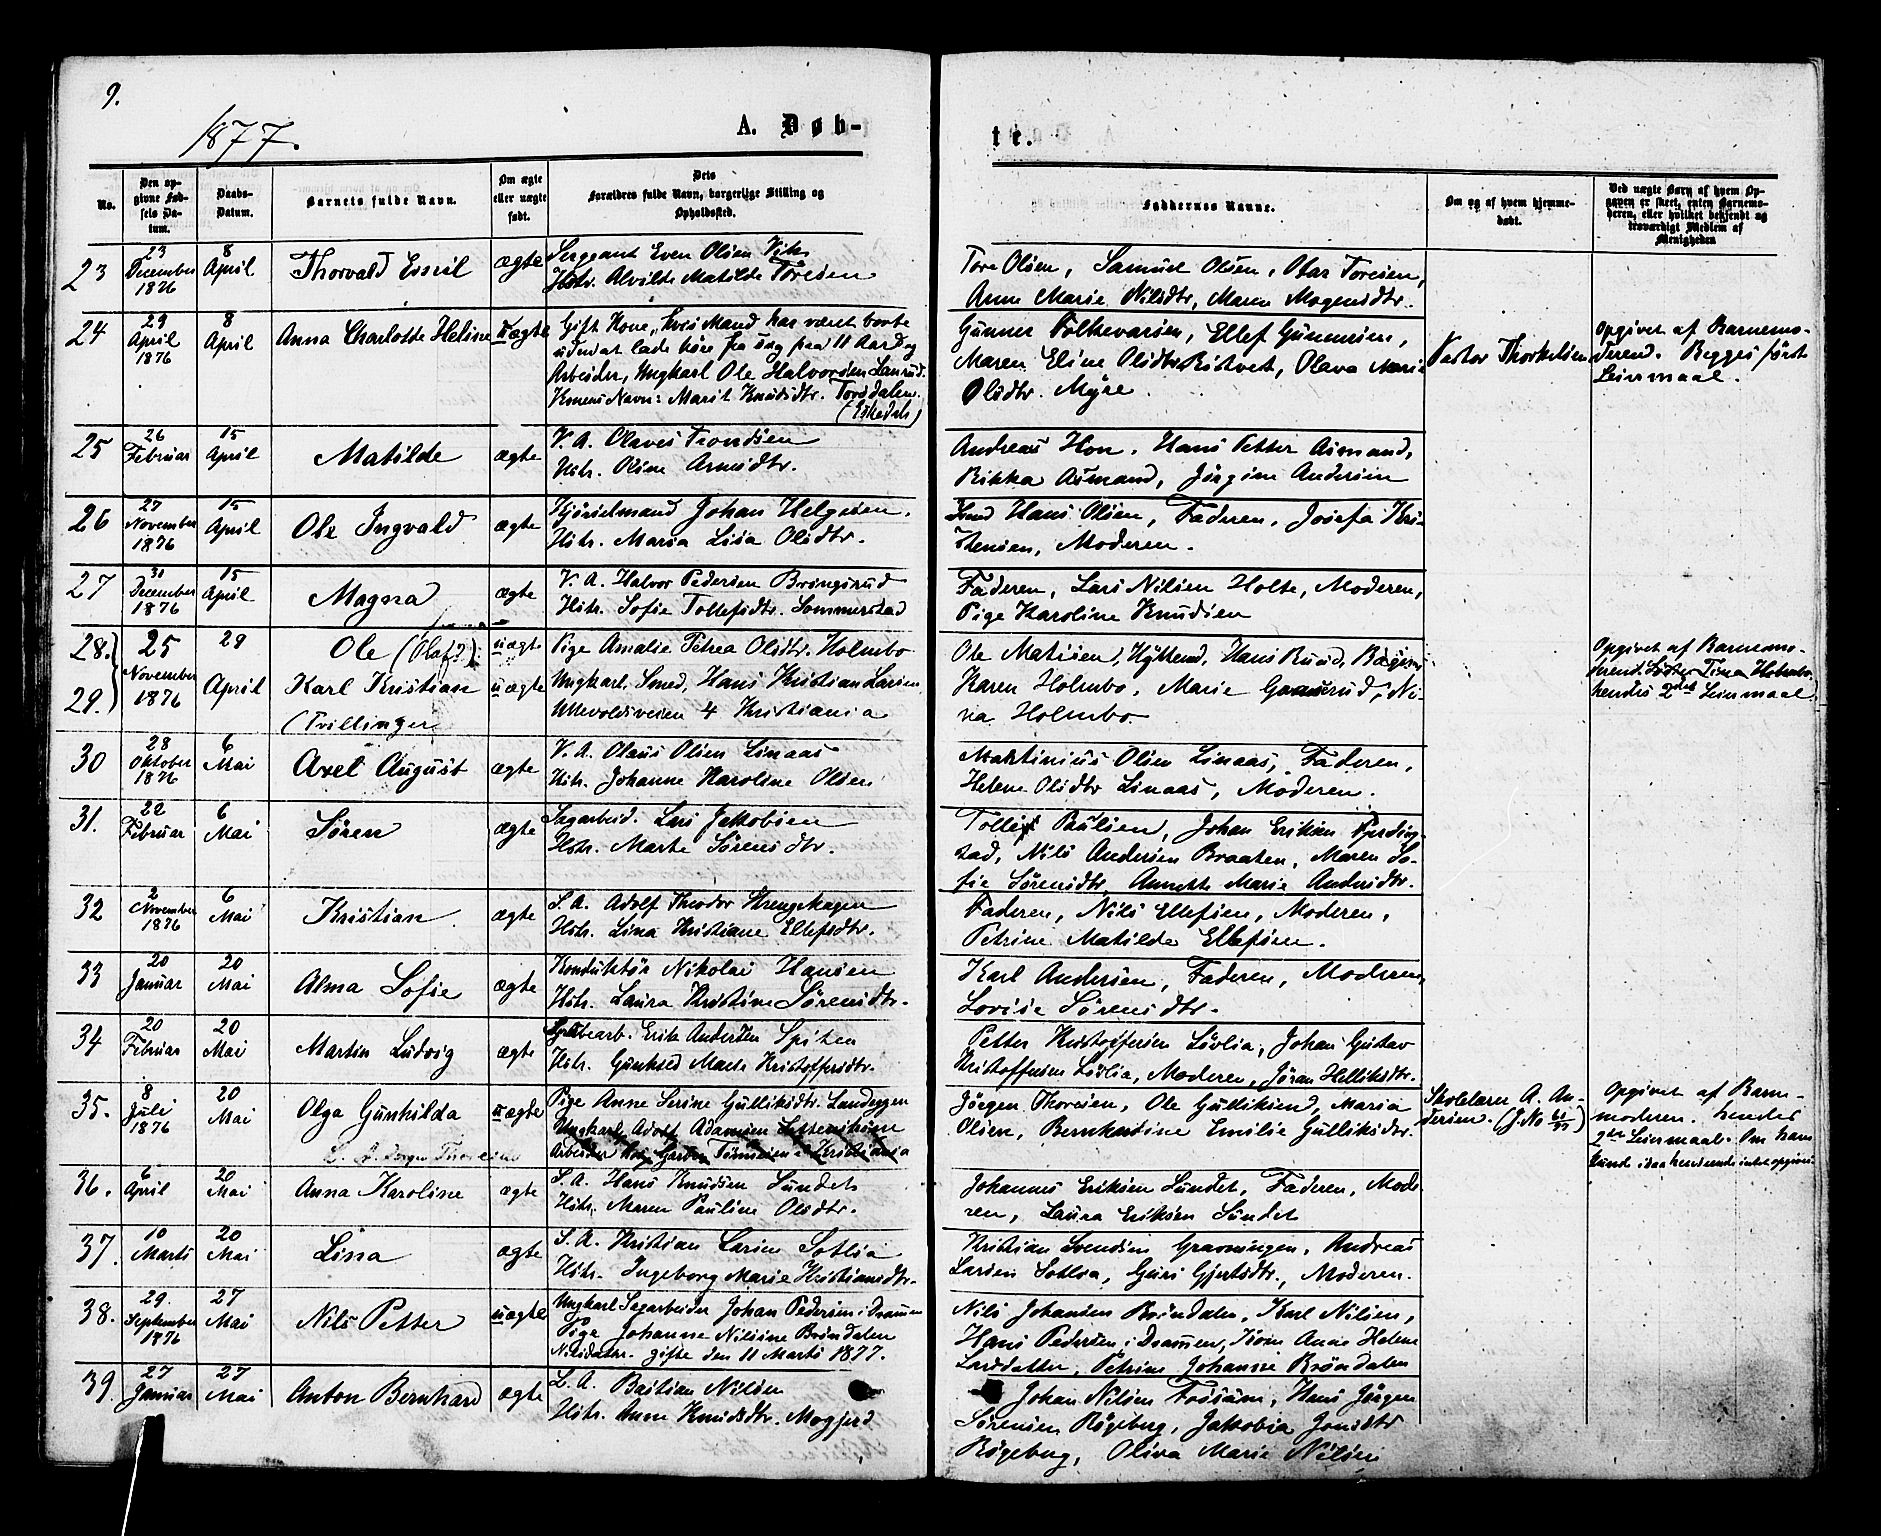 9.
1877.
A. Døb-
te.
No.
Den op-
givne Fød-
sels Da-
tum.
Daabs-
Datum.
Barnets fulde Navn.
Om ægte
eller uægte
født.
Dets
Forældres fulde Navn, borgerlige Stilling og
Opholdssted.
Faddernes Navne.
Om og af hvem hjemme-
døbt.
Ved uægte Børn af hvem Op-
gaven er skeet, enten Barnemo-
deren, eller hvilket bekjendt og
troværdigt Medlem af
Menigheden
23
23
December
1876
8
April
Thorvald Emil
ægte
Sergeant Even Olsen Vik
Hstr. Alvilde Matilde Toresen
Tore Olsen, Samuel Olsen, Olar Toresen,
Anne Marie Nilsdtr, Maren Mogensdtr.
24
29
April
1876
8
April
Anna Charlotte Heline
uægte
Gift Kone, hvis Mand har været borte
uden at lade høre fra sig paa 11 Aar og
Arbeider, Ungkarl Ole Halvorsen Lanrud.
Konens Navn: Marit Knudsdtr. Torsdalen
(Eskedals)
Gunner Folkevarsen, Ellef Gunnersen,
Maren Eline Olsdtr Ristvet, Olava Marie
Olsdtr. Myre.
Pastor Thorkelsen
Opgivet af Barnemo-
deren. Begges første
Leiermaal.
25
26
Februar
15
April
Matilde
ægte
V. A. Olaves Trondsen
Hstr. Oline Arnesdtr.
Andreas Hon, Hans Petter Asmand,
Rikka Asmand, Jørgine Andersen
26
27
November
1876
15
April
Ole Ingvald
ægte
Kjørselmand Johan Helgesen.
Hstr. Maria Lisa Olsdtr.
Hans Olsen, Faderen, Josefa Kri-
stensen, Moderen.
27
31
December
1876
15
April
Magna
ægte
V. A. Halvor Pedersen Bringsrud
Hstr. Sofie Tollefsdtr. Sommerstad
Faderen, Lars Nilsen Holte, Moderen,
Pige Karoline Knudsen
28.
29.
25
November
1876
29
April
Ole (Olaf?)
Karl Kristian
(Tvillinger
uægte
uægte
Pige Amalie Petrea Olsdtr. Holmbo
Ungkarl. Smed, Hans Kristian Larsen
Ullevoldsveien 4 Kristiania
Ole Matisen, Hyttend, Hans Ruud,
Karen Holmbo, Marie Gomsrud, Ni-
na Holmbo
Opgivet af Barnemo-
derens Søster Tina Holmbo,
hendes 2det Leiermaal
30
28
Oktober
1876
6
Mai
Axel August
ægte
V. A. Olaus Olsen Linaas
Hstr. Johanne Karoline Olsen
Martinius Olsen Linaas, Faderen,
Helene Olsdtr Linaas, Moderen.
31.
22
Februar
6
Mai
Søren
ægte
Sagarbeid. Lars Jakobsen
Hstr. Marte Sørensdtr.
Tollef Paulsen, Johan Eriksen Fjerding-
stad, Nils Andersen Braaten, Maren So-
fie Sørensdtr, Annette Marie Andersdtr.
32
2
November
1876
6
Mai
Kristian
ægte
S. A. Adolf Theodor Strengehagen
Hstr. Lina Kristiane Ellefsdtr.
Faderen, Nils Ellefsen, Moderen,
Petrine Matilde Ellefsen.
33
20
Januar
20
Mai
Alma Sofie
ægte
Konduktør Nikolai Hansen
Hstr. Laura Kristine Sørensdtr.
Karl Andersen, Faderen, Moderen,
Lovise Sørensdtr.
34
20
Februar
20
Mai
Martin Ludvig
ægte
Grubearb. Erik Andersen Spiten
Hstr. Gunhild Marie Kristoffersdtr.
Petter Kristoffersen Løvlia, Johan Gustav
Kristoffersen Løvlia, Moderen, Jøran Helliksdtr.
35.
8
Juli
1876
20
Mai
Olga Gunhilda
uægte
Pige Anne Serine Gulliksdtr. Landeggen
Ungkarl, Adolf Adamsen
Arbeider hos Garver Tømsen i Kristiania
L. A. Jørgen Thoresen
Jørgen Thoresen, Ole Gulliksen, Maria
Olsen, Bernhardine Emilie Gulliksdtr.
Skolelærer A. An-
dersen. (J. No
Opgivet af Barne-
moderen. Hendes
2det Leiermaal. Om hans
kunde i saa henseende intet opgives.
36.
6
April
20
Mai
Anna Karoline
ægte
S. A. Hans Knudsen Sundet
Hstr. Maren Pauline Olsdtr.
Johannes Eriksen Sundet, Faderen, Mode-
ren, Laura Eriksen Sundet
37.
10
Marts
20
Mai
Lina
ægte
S. A. Kristian Larsen Sotlia
Hstr. Ingeborg Marie Kristiansdtr.
Kristian Svendsen Gravningen, Andreas
Larsen Sotlia, Guri Gjertsdtr., Moderen.
38.
29.
September
1876
27
Mai
Nils Petter
uægte
Ungkarl Sagarbeider Johan Pedersen i Drammen
Pige Johanne Nilsine Brøndalen
Nilsdatter. gifte den 11 Marts 1877.
Nils Johansen Brøndalen, Karl Nilsen,
Hans Pedersen i Drammen, Kone Anne Helene
Larsdatter, Petrine Johanne Brøndalen
39.
27
Januar
27
Mai
Anton Bernhard
ægte
L. A. Bastian Nilsen
Hstr. Anne Knudsdtr. Mogjerd
Johan Nilsen Fossum, Hans Jørgen
Sørensen Røgeberg, Jakobia Jonsdtr
Røgeberg, Oliva Marie Nilsen